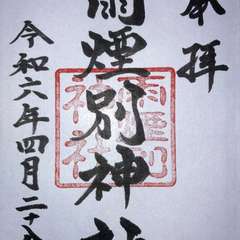 奉拝
雨煙別神社
令和六年四月二十
雨煙別
神社